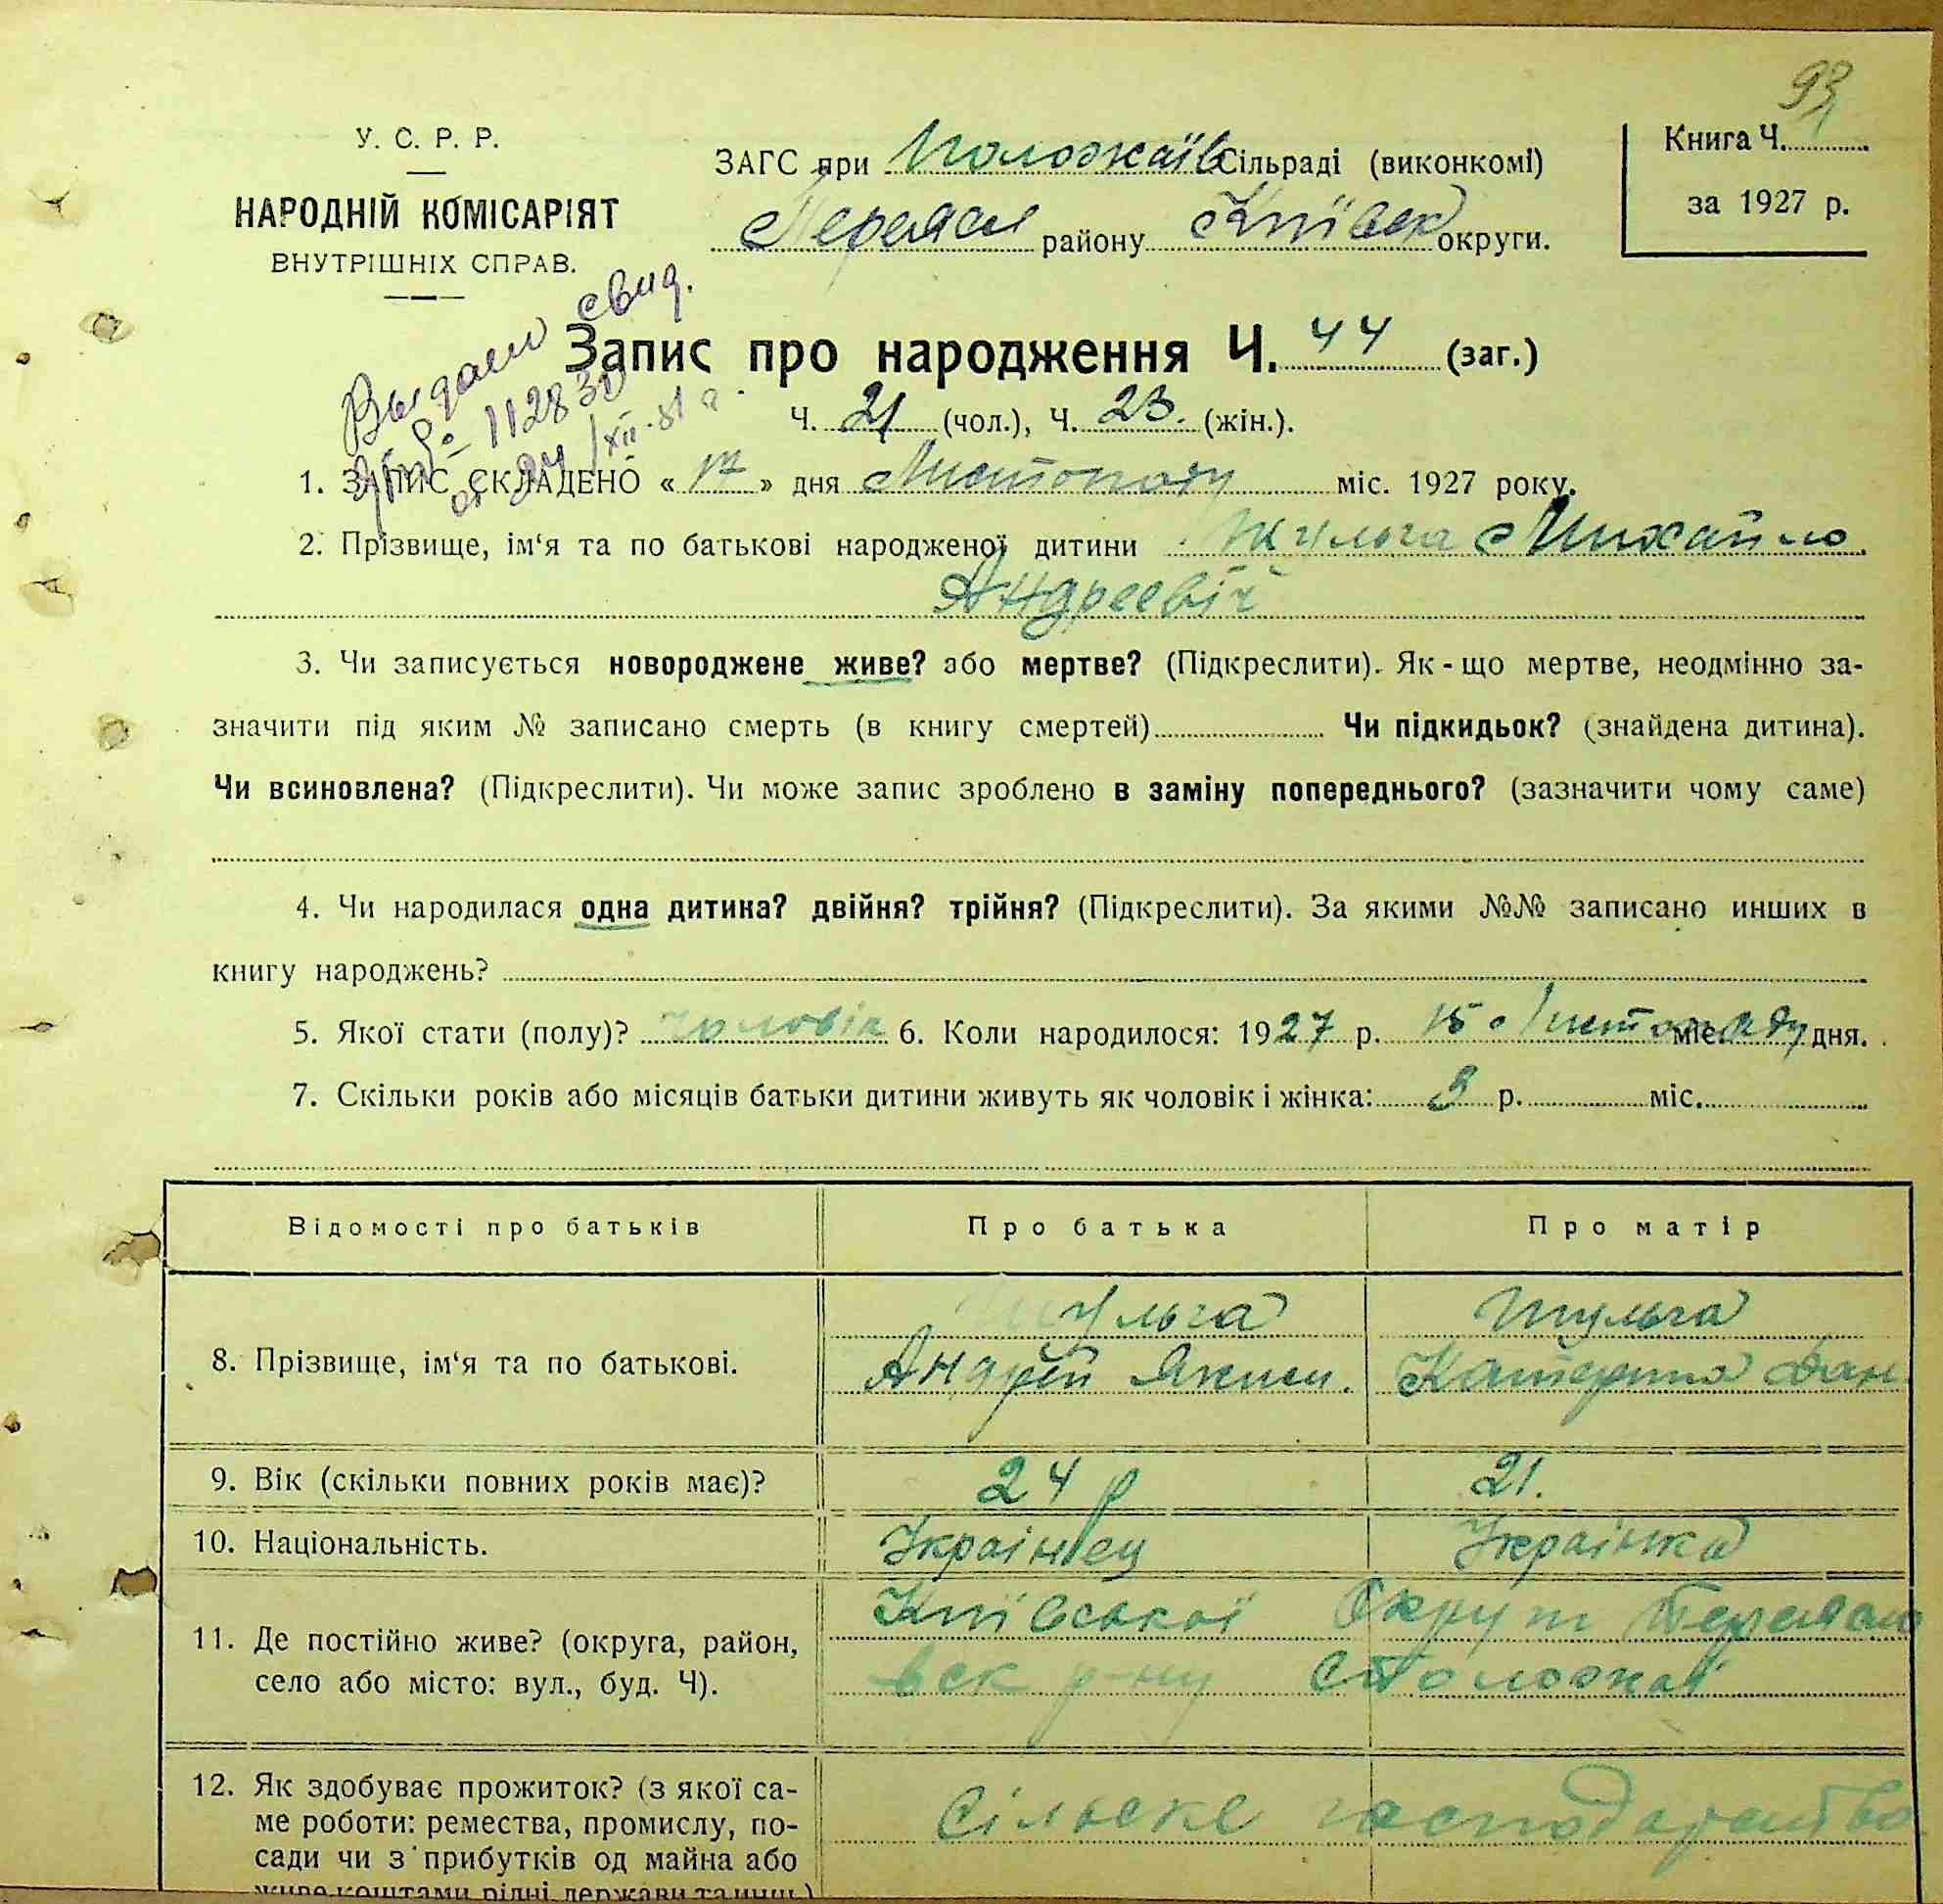 93
У. С. Р. Р.
НАРОДНІЙ КОМІСАРІЯТ
ВНУТРІШНІХ СПРАВ.
ЗАГС при Положаїв Сільраді (виконкомі)
Переясл району Київск округи.
Книга Ч.
за 1927 р.
Выдано свид.
112830
от 24/XII-81 г.
Запис про народження Ч. 44 (заг.)
Ч. 21 (чол.), Ч. 23. (жін.).
1. ЗАПИС СКЛАДЕНО « 17 » дня Листопаду міс. 1927 року.
2. Прізвище, ім‘я та по батькові народженої дитини Шульга Михайло
Андреевіч
3. Чи записується новороджене живе? або мертве? (Підкреслити). Як-що мертве, неодмінно за-
значити під яким № записано смерть (в книгу смертей) Чи підкидьок? (знайдена дитина).
Чи всиновлена? (Підкреслити). Чи може запис зроблено в заміну попереднього? (зазначити чому саме)
4. Чи народилася одна дитина? двійня? трійня? (Підкреслити). За якими №№ записано инших в
книгу народжень?
5. Якої стати (полу)? чоловік 6. Коли народилося: 1927 р. 15 Листопаду міс. дня.
7. Скільки років або місяців батьки дитини живуть як чоловік і жінка: 3 р. міс.
Відомості про батьків Про батька Про матір
8. Прізвище, ім‘я та по батькові. Шульга Андрей Яким. Шульга Катерина Дан
9. Вік (скільки повних років має)? 24 р 21.
10. Національність. Українец Українка
11. Де постійно живе? (округа, район, Київської Округи Переяслав
село або місто: вул., буд. Ч). вск р-ну с Положаї
12. Як здобуває прожиток? (з якої са-
ме роботи: ремества, промислу, по- Сільске господарство
сади чи з прибутків од майна або
живе коштами рідні, держави та инш.)